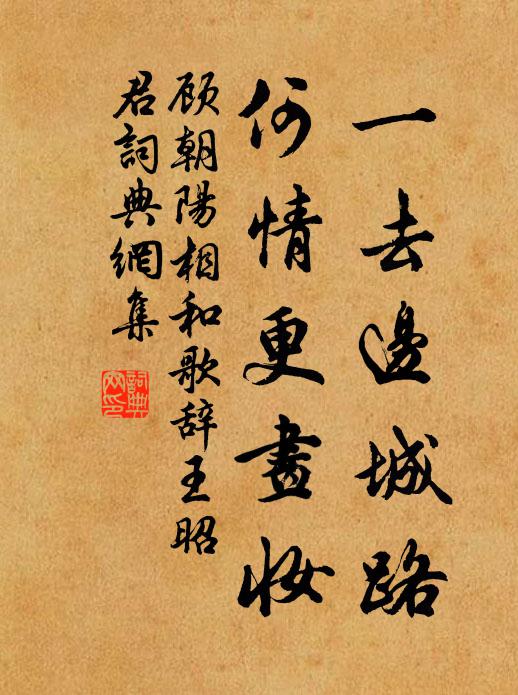 一去邊城路
何情更畫妝
顧朝陽相和歌辭王昭
君詞典網集
詞典
网印